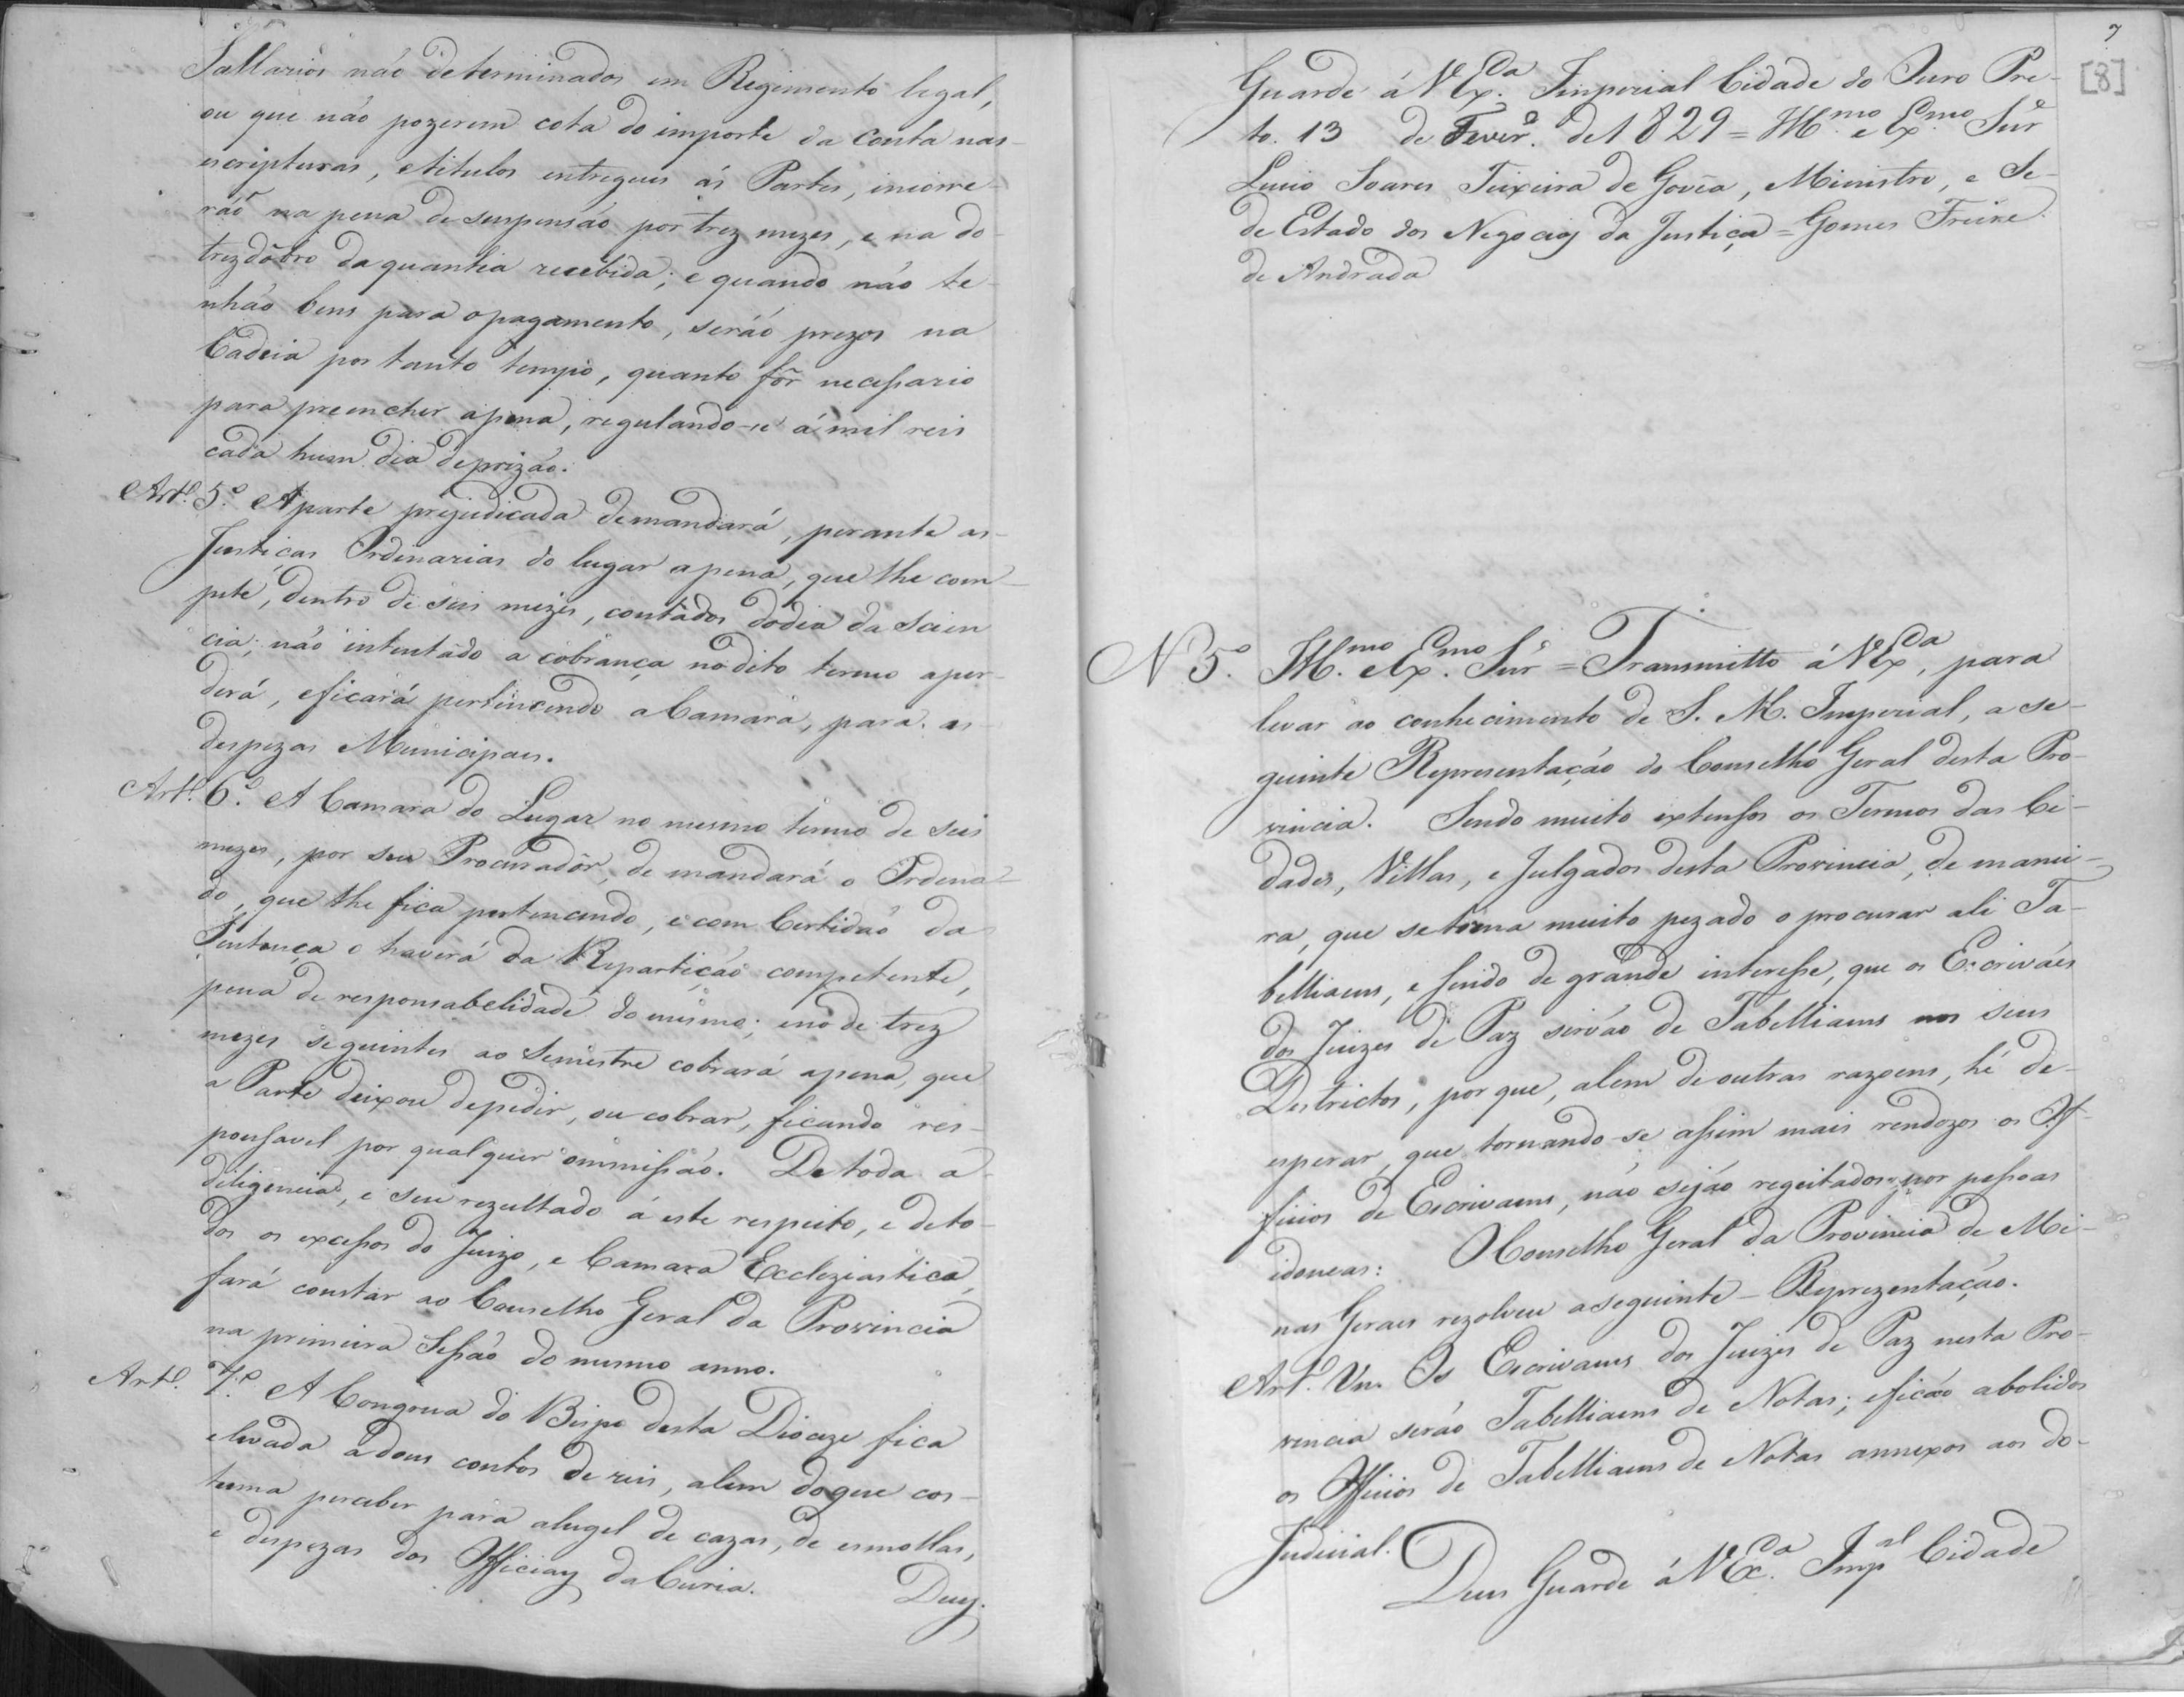 Sallarios não determinados em Regimento legal,
ou que não pozerem cota do importe da conta nas
escripturas, e titulos entregues ás Partes, incorre-
rão na pena de suspensão por trez mezes, e na do
trezdôbro da quantia recebida; e quando não te-
nhão bens para o pagamento, serão prezos na
Cadeia por tanto tempo, quanto fôr necessario
para preencher a pena, regulando-se á mil reis
cada hum dia de prizão.
Artº. 5º. A parte prejudicada demandará, perante as
Justiças Ordinarias do lugar a pena, que lhe com-
pete, dentro de seis mezes, contados do dia da scien
cia; não intentado a cobrança no dito termo a per-
derá, e ficará pertencendo a Camara, para as
despezas Municipaes.
Artº. 6º. A Camara do Lugar no mesmo termo de seis
mezes, por seu Procuradôr, demandará o Ordena-
do, que lhe fica pertencendo, e com Certidão da
Sentença o haverá da Repartição competente,
pena de responsabelidade do mesmo; e no de trez
mezes seguintes ao Semestre cobrará a pena, que
a Parte deixou de pedir, ou cobrar, ficando res-
ponsavel por qualquer ommissão. De toda a
diligencia, e seu rezultado á este respeito, e de to-
dos os excessos do Juizo, e Camara Eccleziastica,
fará constar ao Conselho Geral da Provincia
na primeira Sessão do mesmo anno.
Artº. 7º. A Congrua do Bispo desta Dioceze fica
elevada a dous contos de reis, alem do que cos-
tuma perceber para alugel de cazas, de esmollas,
e despezas dos Officiaes da Curia.
Deus
7
[8]
Guarde á V Exca. Imperial Cidade do Ouro Pre-
to. 13 de Feverº. de 1829 = Illmo. e Exmo. Snr.
Lucio Soares Teixeira de Govêa, Ministro, e Se-
de Estado dos Negocios da Justiça = Gomes Freire
de Andrada
N 5º. Illmo. e Exmo. Snr. = Transmitto á V Exca, para
levar ao conhecimento de S. M. Imperial, a se-
guinte Representação do Conselho Geral desta Pro-
vincia. Sendo muito extensos os Termos das Ci-
dades, Villas, e Julgados desta Provincia, de manei-
ra, que se torna muito pezado o procurar ali Ta-
belliaens, e sendo de grande interesse, que os Escrivães
dos Juizes de Paz sirvão de Tabelliaens nos seus
Destrictos, por que, alem de outras razoens, hé de
esperar, que tornando-se assim mais rendozos os Of-
ficios de Escrivaens, não sejão regeitados por pessoas
idoneas: O Conselho Geral da Provincia de Mi-
nas Geraes rezolveu a seguinte - Reprezentação.
Artº. Un. Os Escrivaens dos Juizes de Paz nesta Pro-
vincia serão Tabelliaens de Notas; e ficão abolidos
os Officios de Tabelliaens de Notas annexos aos do
Judicial.
Deus Guarde á V Exca. Impal Cidade